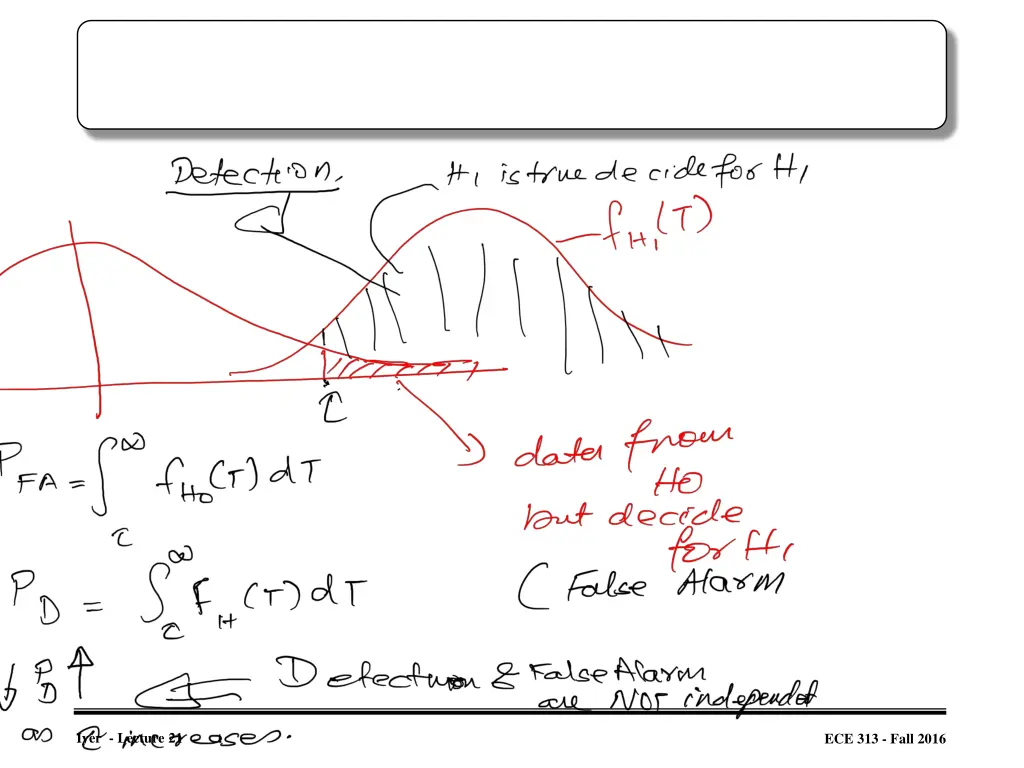 Detection, H₁ is true decide for H₁
f_H₁(T)
τ
P_FA = ∫_τ^∞ f_H0(T) dT
data from
H0
but decide
for H₁
P_D = ∫_τ^∞ F_H(T) dT
( False Alarm
P_D ↑ ⇐ Detection & False Alarm
are NOT independet
as τ increases.
Iyer - Lecture 21
ECE 313 - Fall 2016